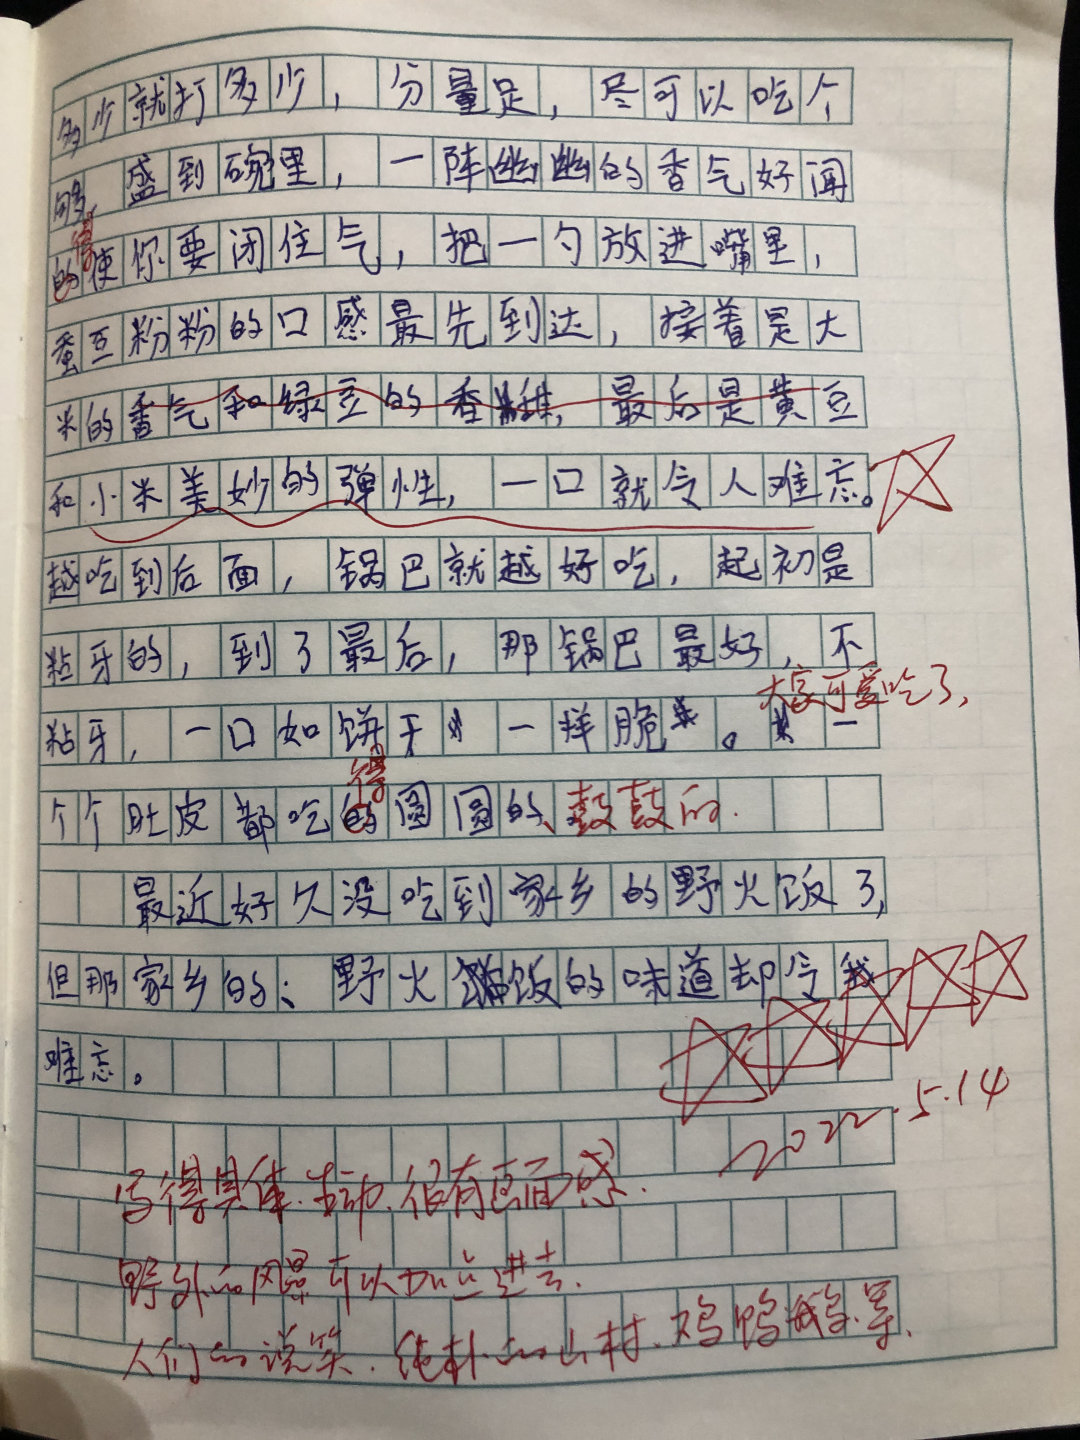 多少就打多少，分量足，尽可以吃个
够。盛到碗里，一阵幽幽的香气好闻
得
的使你要闭住气，把一勺放进嘴里，
蚕豆粉粉的口感最先到达，接着是大
米的香气和绿豆的香，最后是黄豆
和小米美妙的弹性，一口就令人难忘。
越吃到后面，锅巴就越好吃，起初是
粘牙的，到了最后，那锅巴最好，不
大家可爱吃了，
粘牙，一口如饼干一样脆。一
得
个个肚皮都吃的圆圆的、鼓鼓的.
最近好久没吃到家乡的野火饭了，
但那家乡的、野火饭的味道却令我
难忘。
2022.5.14
写得具体.生动.很有画面感.
野外的风景可以加点进去.
人们的说笑.纯朴的山村.鸡鸭鹅.等.